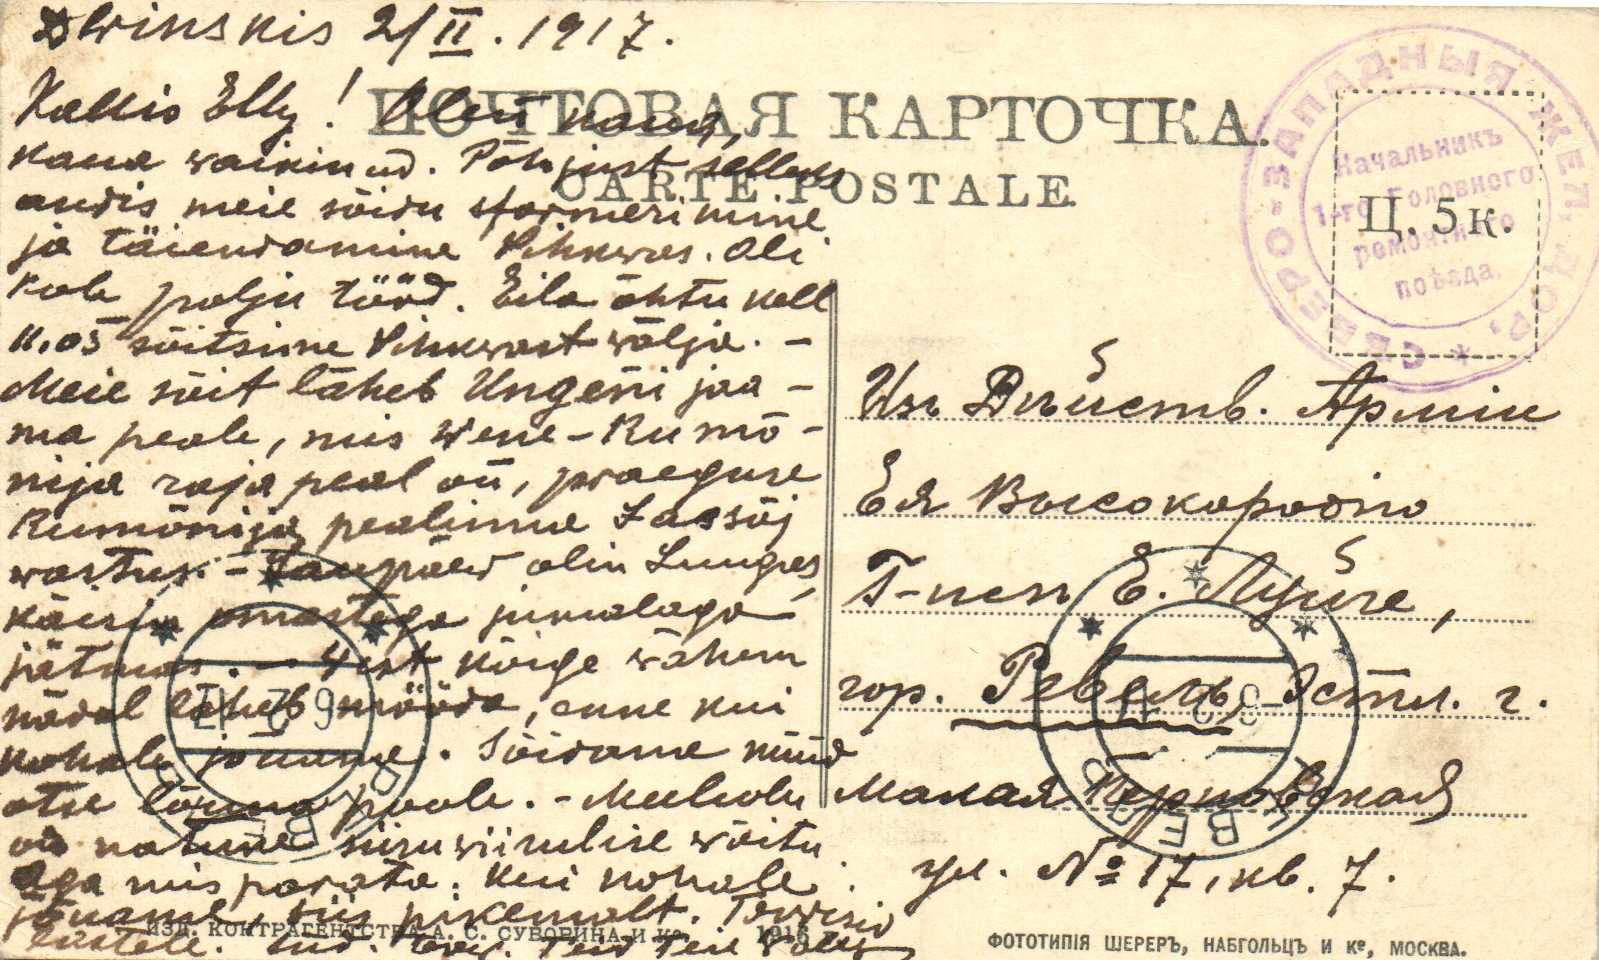 Dwinskis 2/II. 1917.
Kallis Elly! Olen kaua,
kaua waikinud. Põhjust selleks
andis meie sõidu sformerimine
ja täiendamine Pihkwas. Oli
palju tööd. Eila õhtu kell
11.05 sõitsime Pihkwast wälja. –
Meie sõit läheb Ungeni jaa-
ma peale, mis Wene-Rumö-
nija raja peal on, praeguse
Rumönija pealinna Jassöj
wastus. – Laupäew olin
käisin omastega jumalaga
jätmas. – West kõige wähem
nädal läheb mööda, enne kui
kohale jõuame. Sõidame nüüd
otse lõuna poole. – Meeleolu
on natune siiruwiirulise wõitu
aga mis parata. Kui kohale
jõuame, siis pikemalt. Terwisid
lastele. Teid Teie
ПОЧТОВАЯ КАРТОЧКА.
CARTE POSTALE.
СѢВЕРО-ЗАПАДНЫЯ ЖЕЛ. ДОР.
Начальникъ
1-го Головного
ремонтного
поѣзда.
Ц. 5 к.
Изъ Дѣйств. Арміи
Ея Высокородію
Г-жѣ Е.
гор. Ревель, Эстл. г.
Малая Перновская
ул. № 17, кв. 7.
РЕВЕЛЬ
РЕВЕЛЬ
ИЗД. КОНТРАГЕНТСТВА А. С. СУВОРИНА И Ко. 1916
ФОТОТИПІЯ ШЕРЕРЪ, НАБГОЛЬЦЪ И Ко, МОСКВА.